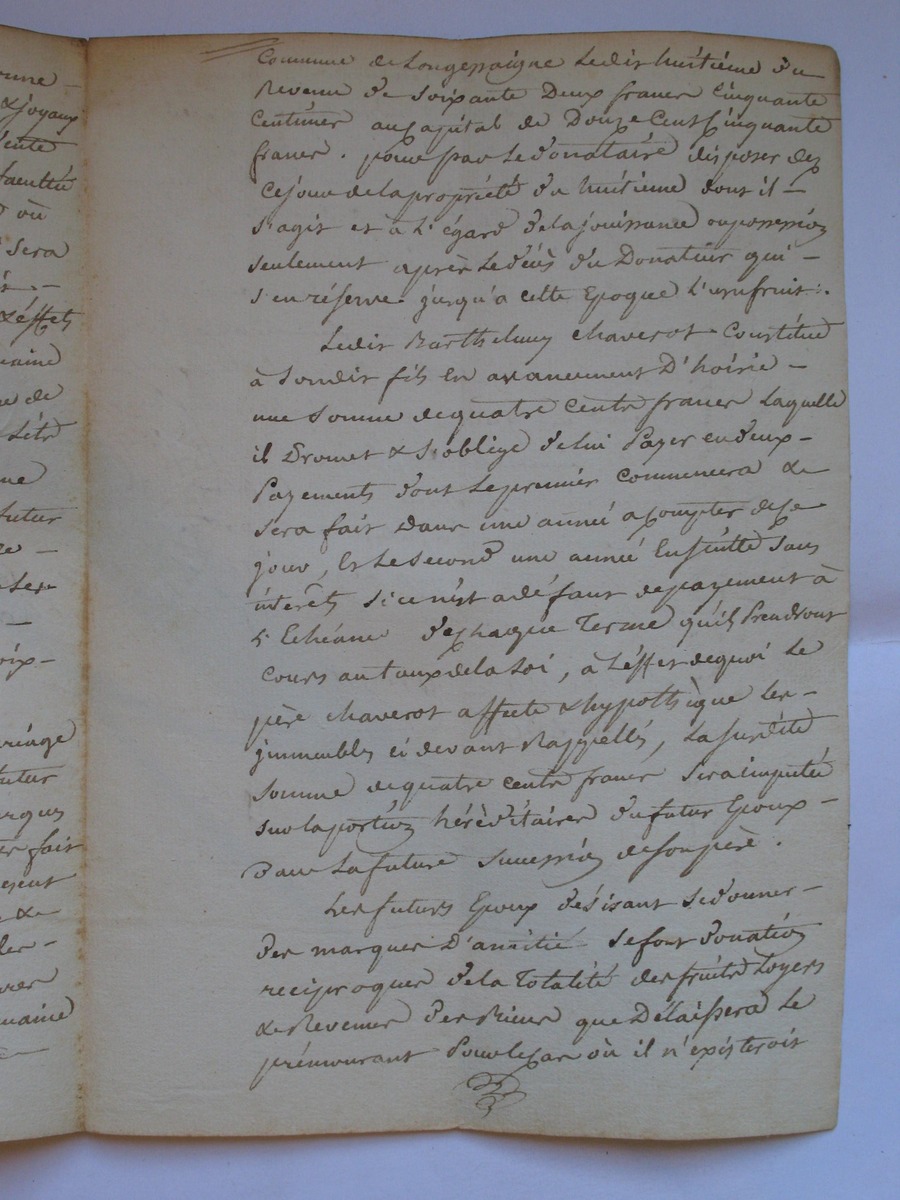 onne -
& joyaux
Vente
faculté
où
sera
& éffets
maine
ne de
me
futur
-
-
oix -
futur
er fait
& -
ler -
maine
Commune de Longessaigne Ledit huitième du
Revenu de Soixante Deux francs Cinquante
Centimes au Capital de Douze Cent Cinquante
francs. pour par Le donataire disposer dez
Cejour de la propriété du huitieme dont il -
S'agit et à L'égard de la jouissance ou possession
seulement après Le décès du Donateur qui -
S'en réserve jusqu'a cette Epoque L'usufruit.
Ledit Barthelemy Chaverot Constitue
à Sondit fils En avancement D'hoirie -
une Somme de quatre Cents francs Laquelle
il Promet & S'oblige de lui Payer en deux -
Payements dont Le premier Commencera &
Sera fait Dans une année a Compter de ce
jour, Et Le Second une année Ensuitte Sans
intérêts Si ce n'est a défaut de payement à
L'Echéance de chaque Terme qu'ils Prendront
Cours au taux de la Loi, à L'éffet de quoi Le
père Chaverot affecte & hypothèque les -
jmmeubles ci devant Rappellés, La susdite
Somme de quatre Cents francs Sera imputée
sur la portion héréditaire du futur Epoux -
Dans La future Succession de Son père.
Les futurs Epoux désirant Se donner -
Des marques D'amitié Se font donation
reciproque de la Totalité des fruits Loyers
& Revenus Des Biens que Délaissera Le
prémourant Pour le Cas où il n'existeroit